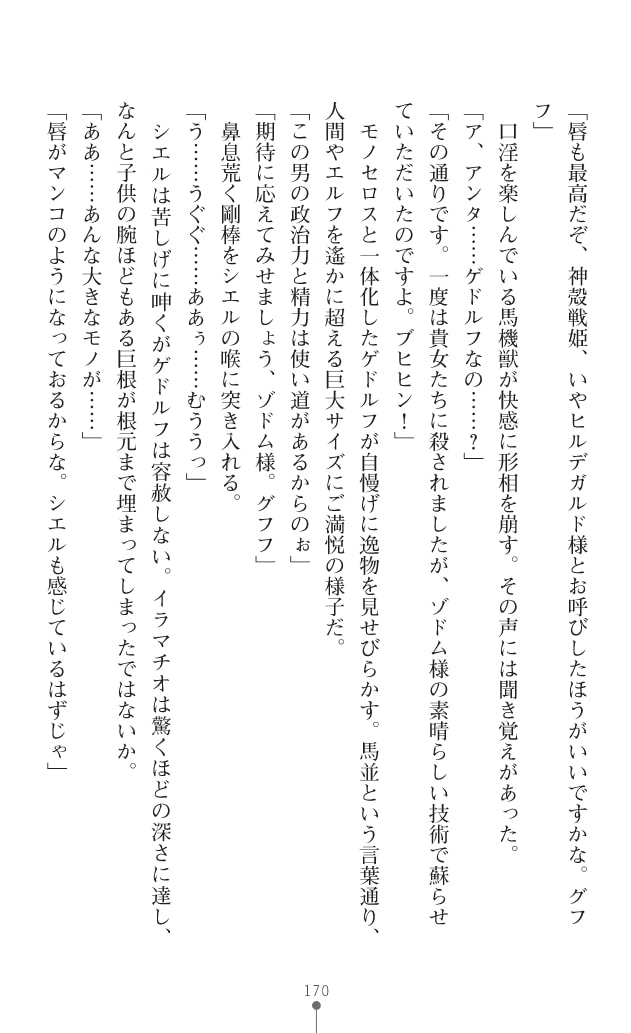 「唇も最高だぞ、神殻戦姫、いやヒルデガルド様とお呼びしたほうがいいですかな。グフ
フ」
　口淫を楽しんでいる馬機獣が快感に形相を崩す。その声には聞き覚えがあった。
「ア、アンタ……ゲドルフなの……？」
「その通りです。一度は貴女たちに殺されましたが、ゾドム様の素晴らしい技術で蘇らせ
ていただいたのですよ。ブヒヒン！」
　モノセロスと一体化したゲドルフが自慢げに逸物を見せびらかす。馬並という言葉通り、
人間やエルフを遙かに超える巨大サイズにご満悦の様子だ。
「この男の政治力と精力は使い道があるからのぉ」
「期待に応えてみせましょう、ゾドム様。グフフ」
　鼻息荒く剛棒をシエルの喉に突き入れる。
「う……うぐぐ……ああぅ……むううっ」
　シエルは苦しげに呻くがゲドルフは容赦しない。イラマチオは驚くほどの深さに達し、
なんと子供の腕ほどもある巨根が根元まで埋まってしまったではないか。
「ああ……あんな大きなモノが……」
「唇がマンコのようになっておるからな。シエルも感じているはずじゃ」
170